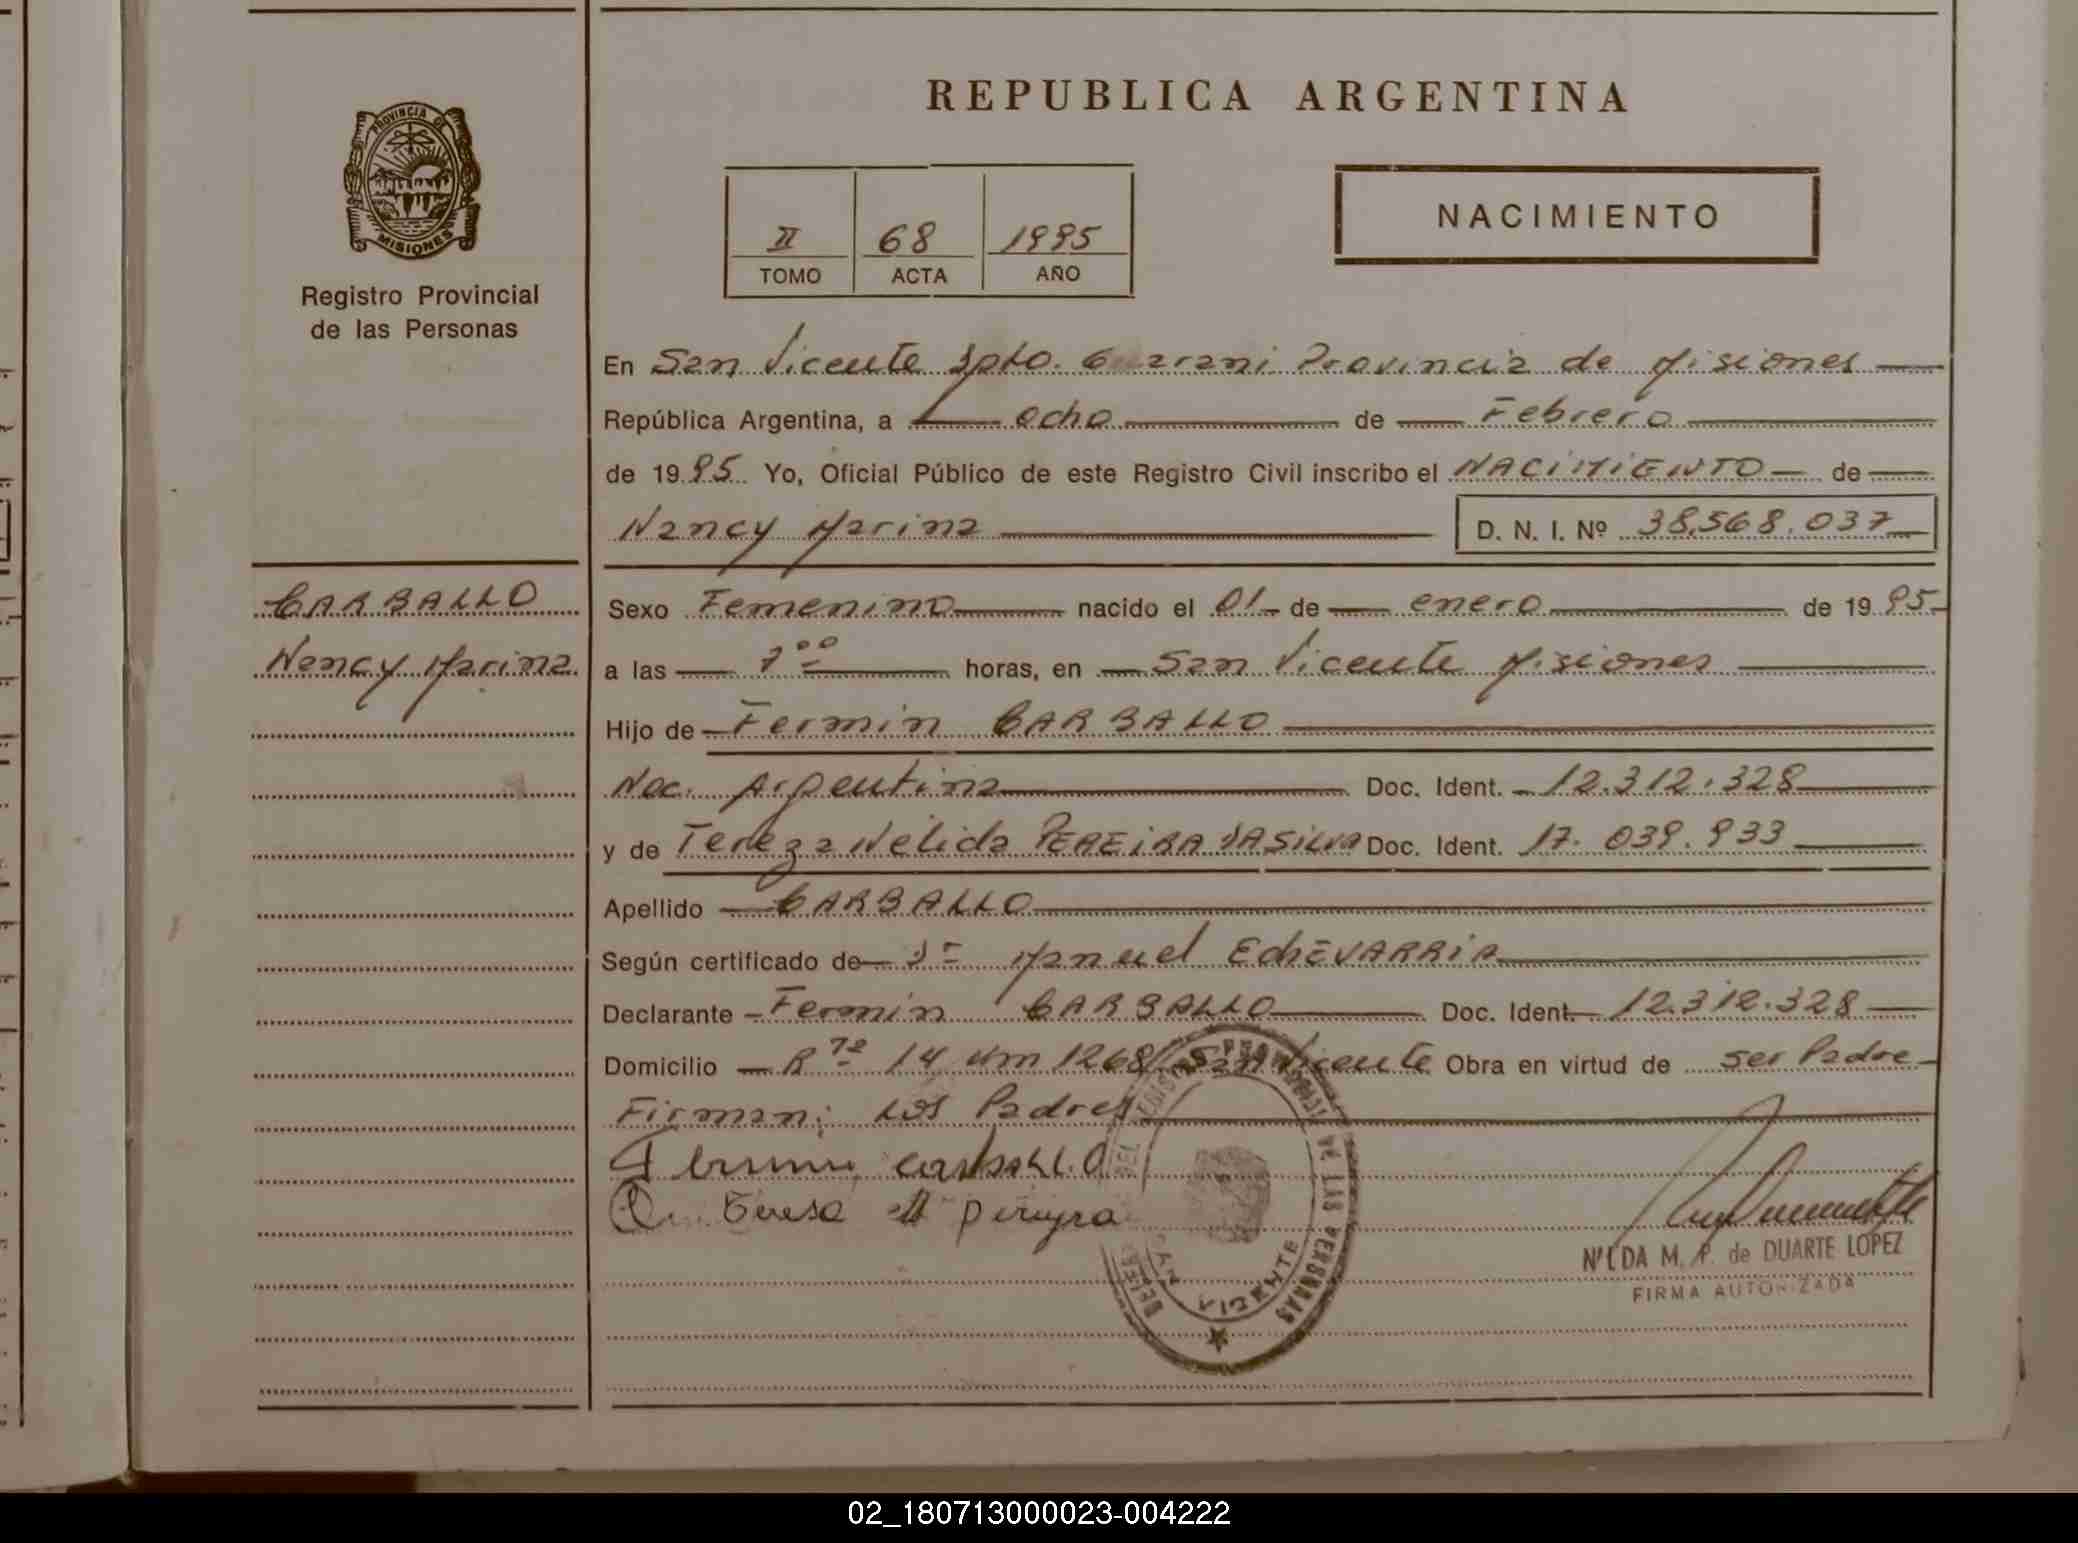 REPUBLICA ARGENTINA
PROVINCIA DE
MISIONES
Registro Provincial
de las Personas
II 68 1995
TOMO ACTA AÑO
NACIMIENTO
En San Vicente Dpto. Guarani Provincia de Misiones
República Argentina, a ocho de Febrero
de 1995 Yo, Oficial Público de este Registro Civil inscribo el NACIMIENTO de
Nancy Marina D. N. I. Nº 38.568.037
CARBALLO
Nancy Marina
Sexo Femenino nacido el 01 de enero de 1995
a las 700 horas, en San Vicente Misiones
Hijo de Fermin CARBALLO
Nac. Argentina Doc. Ident. 12.312.328
y de Tereza Nelida PEREIRA DASILVA Doc. Ident. 17.039.933
Apellido CARBALLO
Según certificado de Manuel EchEVARRIA
Declarante Fermin CARBALLO Doc. Ident. 12.312.328
Domicilio 14 Km 1268 San Vicente Obra en virtud de ser Padre
Firman: Los Padres
carballo
Teresa pereyra
DE LAS PERSONAS
VICENTE
NILDA M. P. de DUARTE LOPEZ
FIRMA AUTORIZADA
02_180713000023-004222